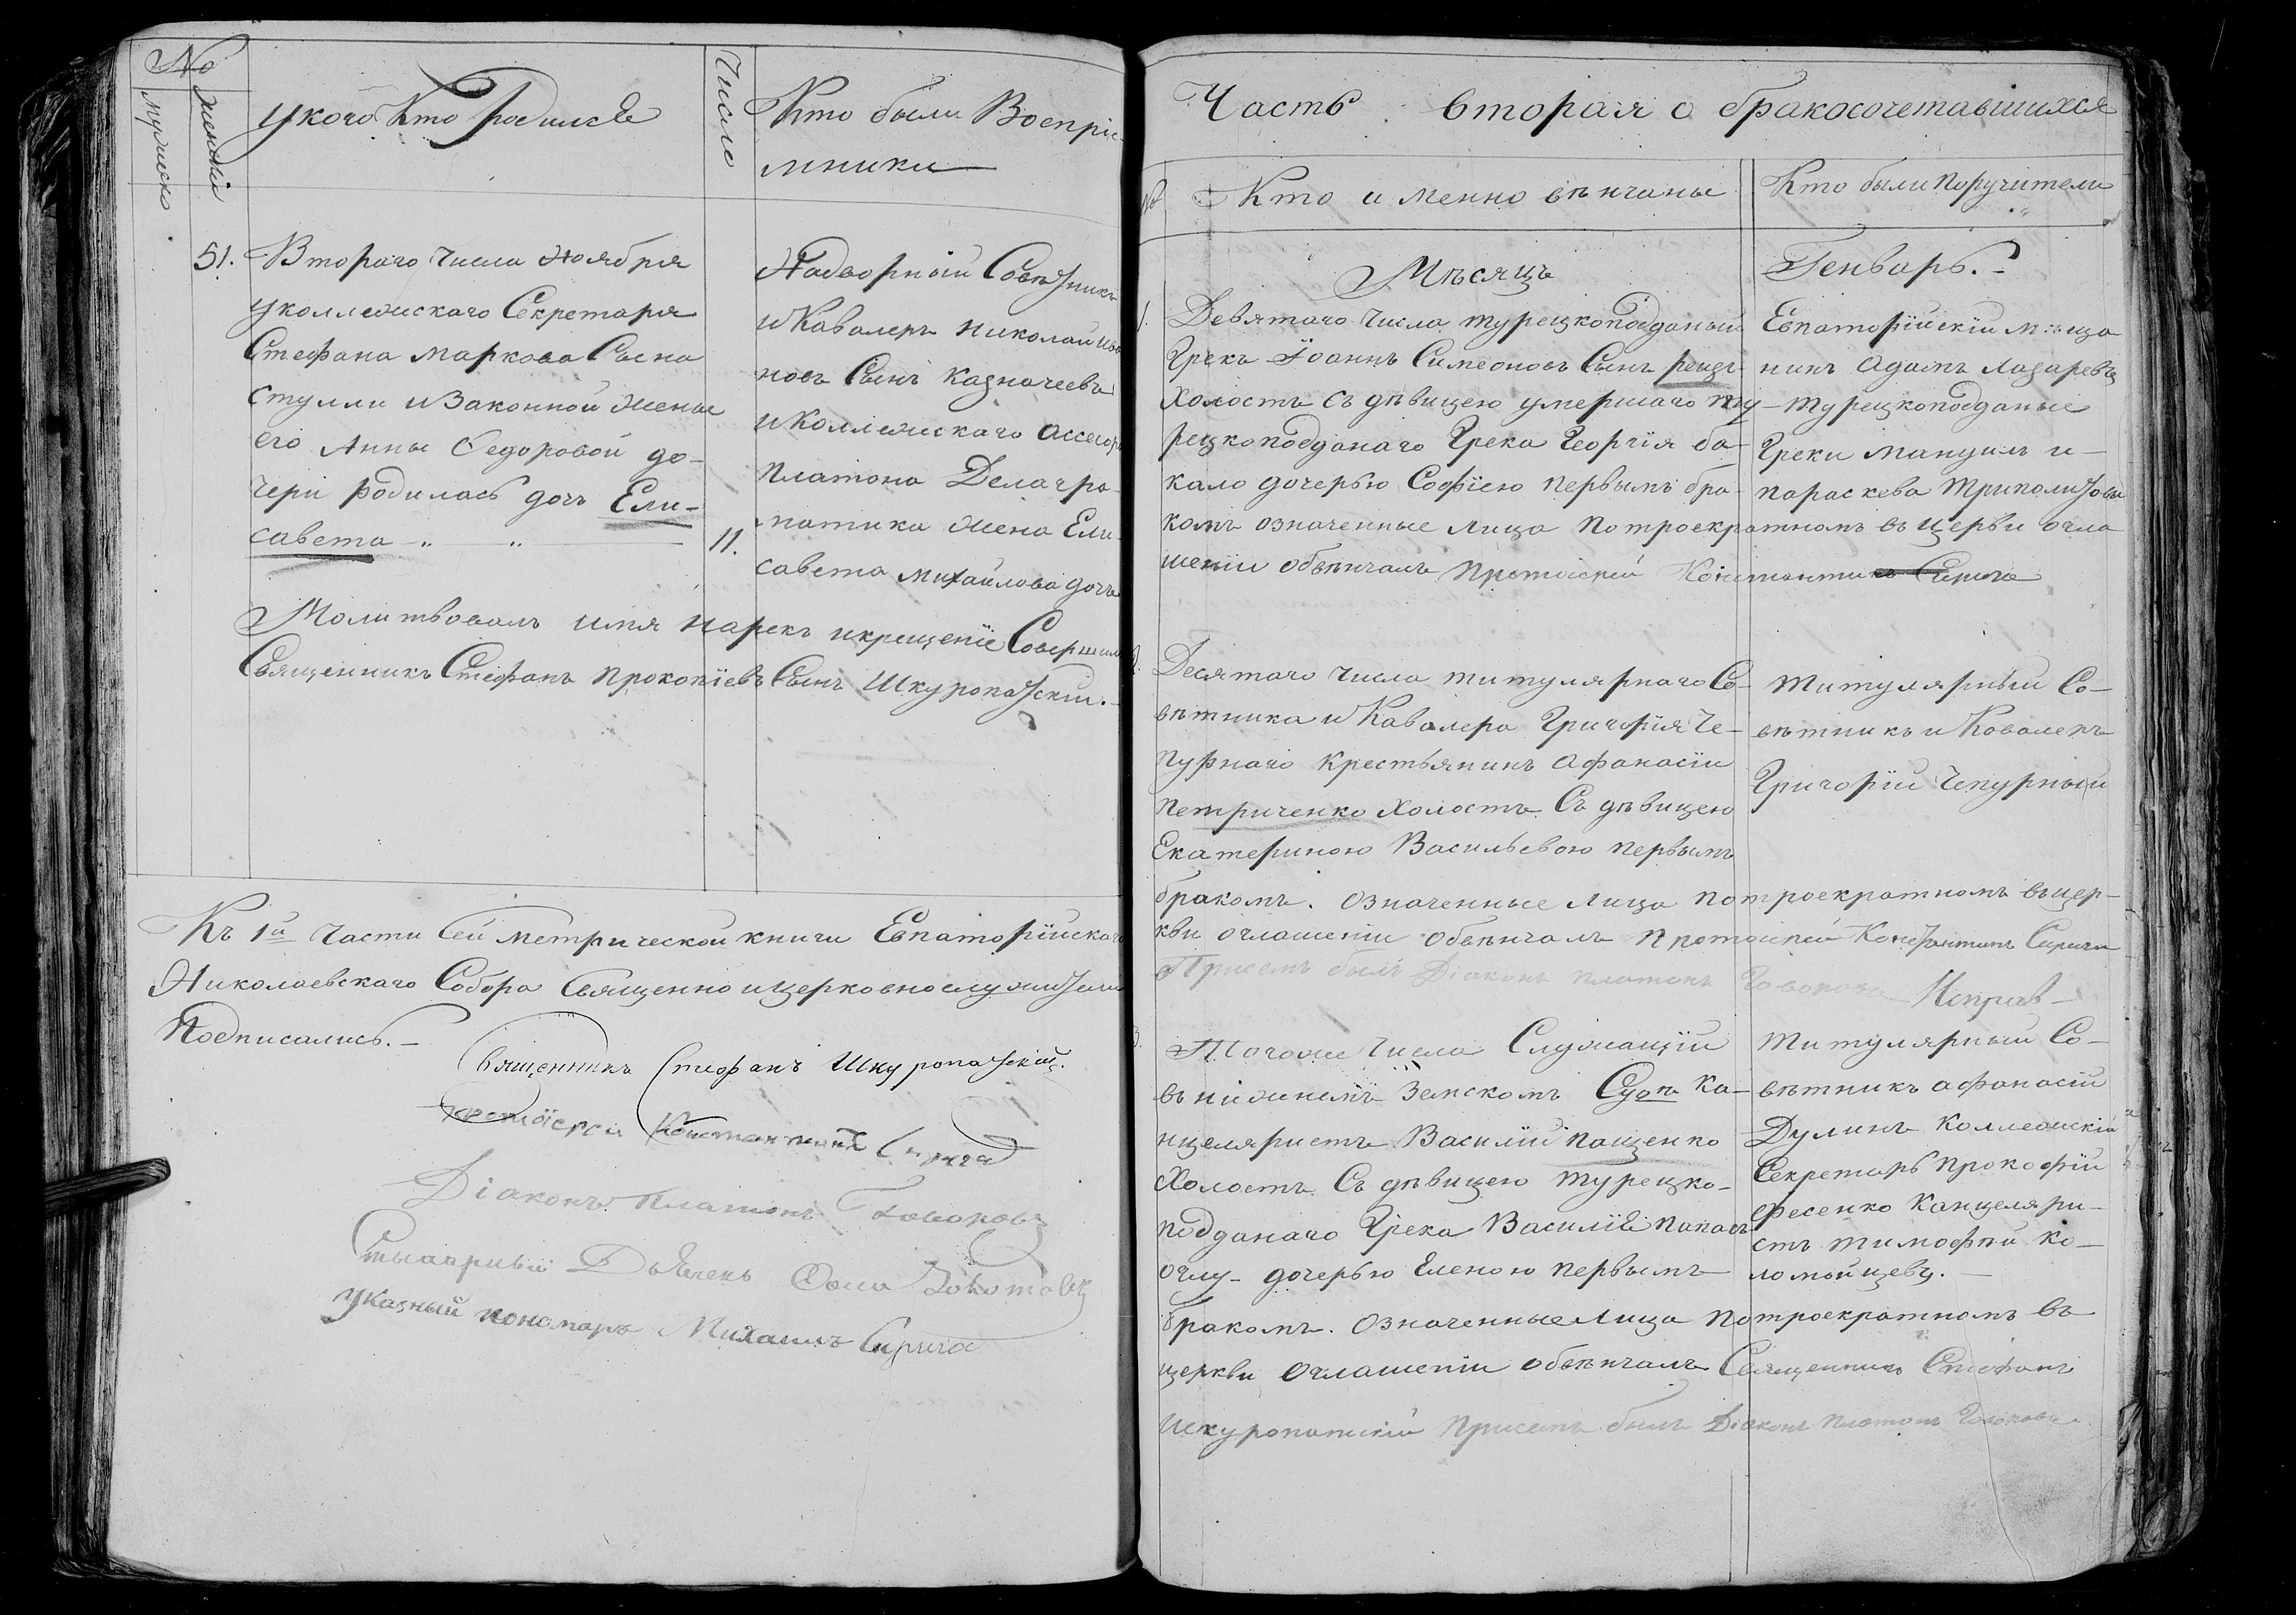 №
Мужеска
Женска
Укого Кто родился
Число
Кто были Воспріе
мники
51.
Втораго Числа Ноября
уколлежскаго Секретаря
Стефана Маркова Сына
Стулли изаконной жены
его Анны Федоровой до-
чери родилась дочь Ели-
савета
11.
Надворный Совѣтникъ
иКавалеръ Николай Ива
новъ Сынъ Казначеевъ
иКоллежскаго Ассесора
Платона Делагра-
матика жена Ели-
савета Михайлова дочь
Молитвовалъ имя нарекъ икрещеніе Совершилъ
Священникъ Стефанъ Прокопіевъ Сынъ Шкуропатскій.
Къ 1й Части Сей метрической книги Евпаторійскаго
Николаевскаго Собора Священно ицерковнослужители
Подписались.
Священникъ Стефанъ Шкуропатскій.
Протоіерей Константинъ Сирига
Діаконъ Платонъ Говоровъ
Указный пономарь Михаилъ Сирига
Часть вторая о бракосочетавшихся
№
Кто именно вѣнчаны
Кто были Поручители
Мѣсяцъ
Генварь.
1.
Девятаго Числа турецкоподданый
Грекъ Іоаннъ Симеоновъ Сынъ
Холостъ съ дѣвицею умершаго ту-
рецкоподданаго Грека Георгія ба-
кало дочерью Софіею первымъ бра-
комъ означенные лица потроекратномъ въ церкви огла
шеніи обвѣнчалъ Протоіерей Константинъ Сирига
Евпаторійскій мѣща
нинъ Адамъ Лазаревъ
Турецкоподданые
Греки Мануилъ и
Параскева Триполитовы
2.
Десятаго Числа титулярнаго Со-
вѣтника иКавалера Григорія Че-
пурнаго крестьянинъ Афанасіи
Петриченко Холостъ Съ дѣвицею
Екатериною Васильевою первымъ
бракомъ. означенные лица потроекратномъ вцер-
кви оглашеніи обвѣнчалъ Протоіерей Константинъ Сирига
Присемъ былъ Діаконъ Платонъ Говоровъ
Титулярный Со-
вѣтникъ иКавалеръ
Григорій Чепурный
3.
Тогоже Числа Служащій
въ нижнемъ Земскомъ Судѣ ка-
нцеляристъ Василій Пащенко
Холостъ Съ дѣвицею турецко-
подданаго Грека Василія Папас
оглу- дочерью Еленою первымъ
бракомъ. Означенные лица потроекратномъ въ
церкви оглашеніи обвѣнчалъ Священникъ Стефанъ
Шкуропатскій Присемъ былъ Діаконъ Платонъ Говоровъ
Титулярный Со-
вѣтникъ Афанасій
Дулинъ Коллежскій
Секретарь Прокофій
Фесенко Канцеляри-
стъ Тимофей Ко-
ломойцевъ.